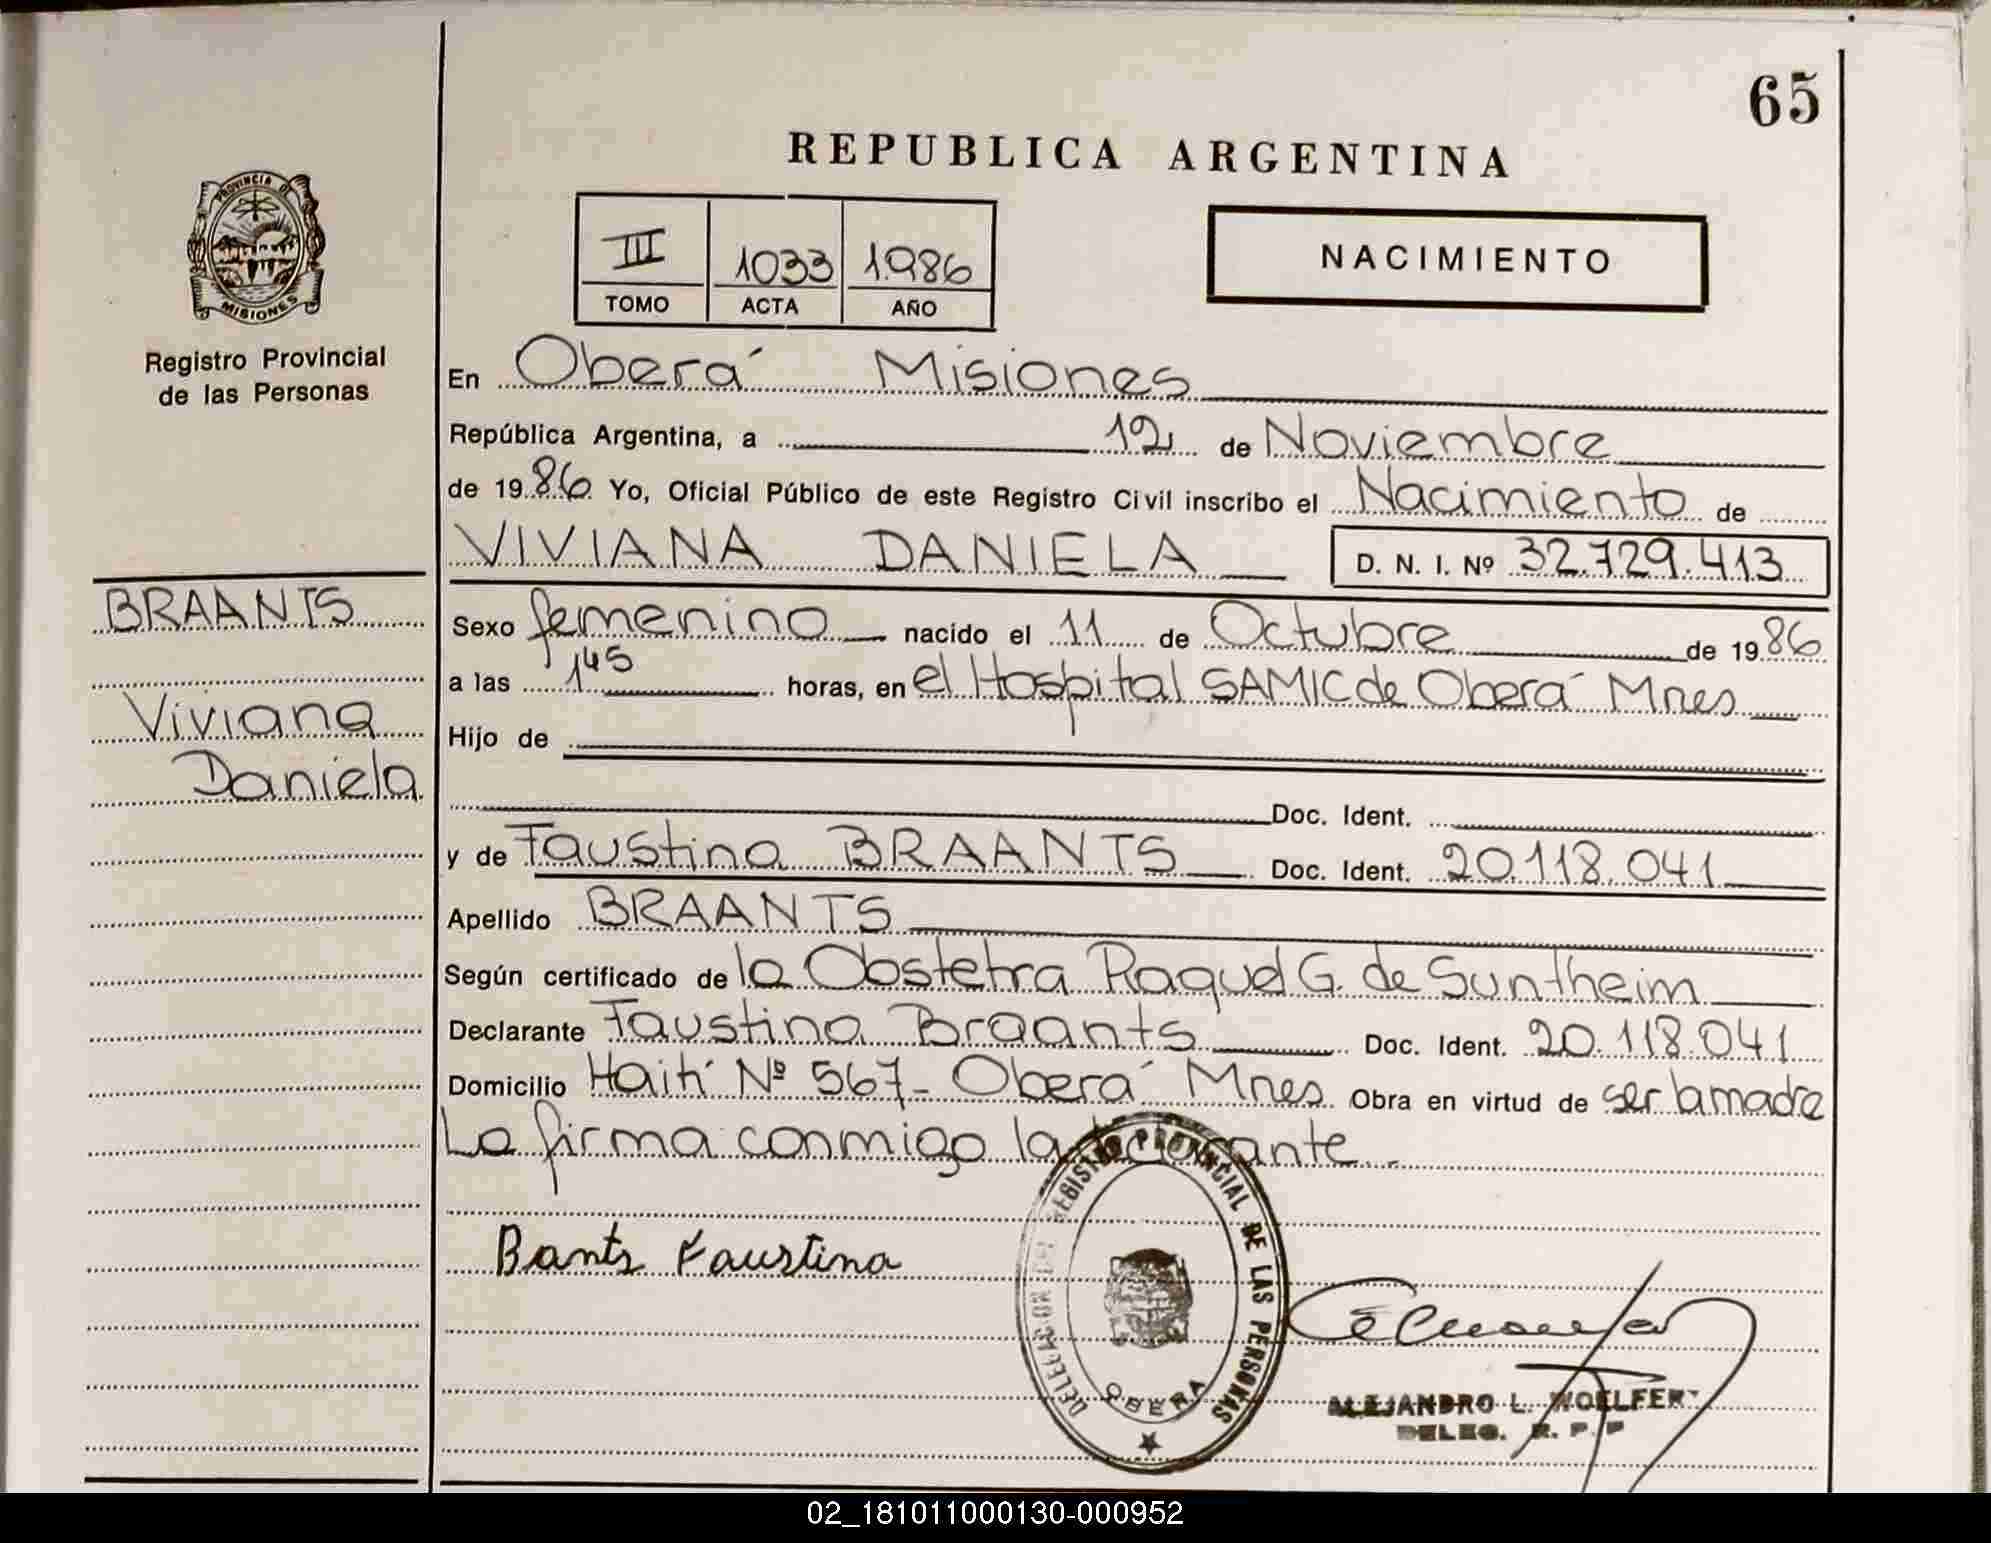 65
REPUBLICA ARGENTINA
PROVINCIA DE
MISIONES
Registro Provincial
de las Personas
III 1033 1986
TOMO ACTA AÑO
NACIMIENTO
En Oberá Misiones
República Argentina, a 12 de Noviembre
de 1986 Yo, Oficial Público de este Registro Civil inscribo el Nacimiento de
VIVIANA DANIELA D. N. I. Nº 32.729.413
BRAANTS
Viviana
Daniela
Sexo femenino nacido el 11 de Octubre de 1986
a las 1 45 horas, en el Hospital SAMIC de Oberá Mnes
Hijo de
Doc. Ident.
y de Faustina BRAANTS Doc. Ident. 20.118.041
Apellido BRAANTS
Según certificado de la Obstetra Raquel G. de Suntheim
Declarante Faustina Braants Doc. Ident. 20.118.041
Domicilio Haití Nº 567- Oberá Mnes Obra en virtud de ser la madre
La firma conmigo la declarante
Bants Faustina
DELEGACION DEL REGISTRO PROVINCIAL DE LAS PERSONAS
OBERA
ALEJANDRO L. WOELFERT
DELEG. R. P. P
02_181011000130-000952